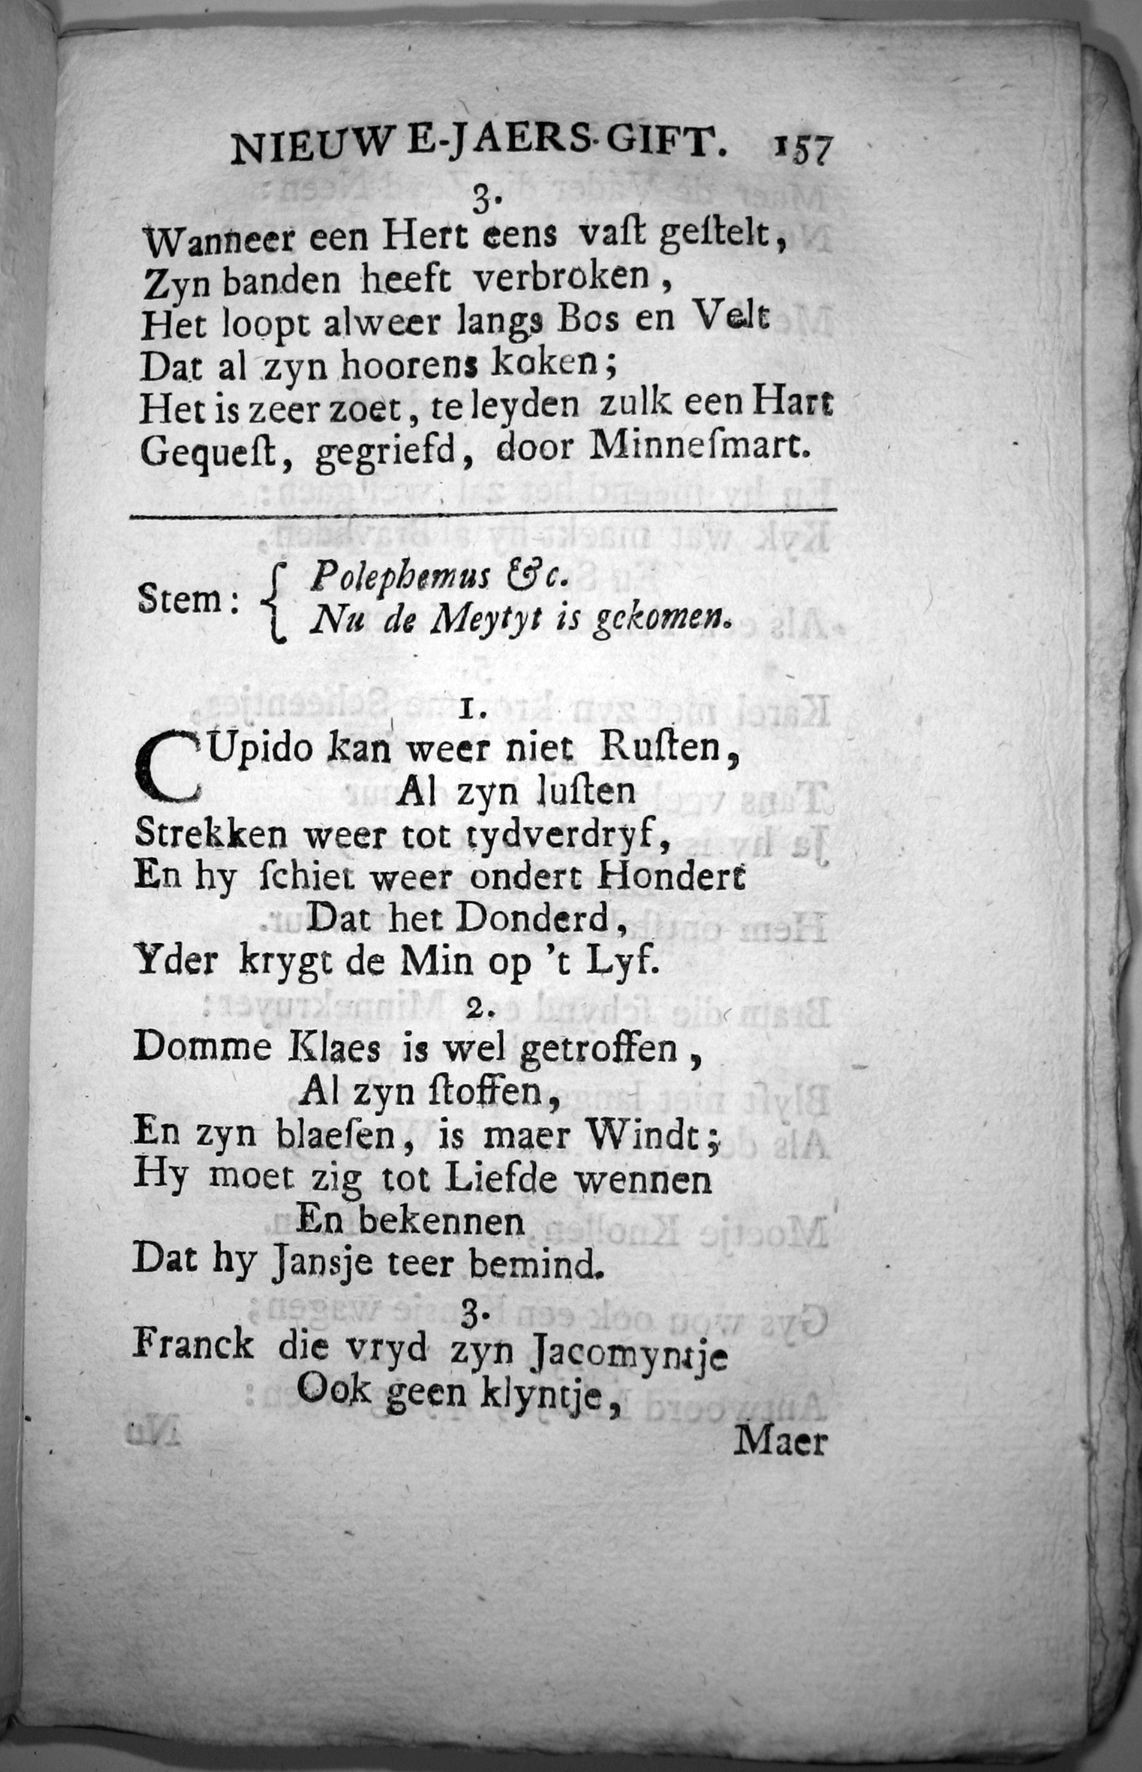 NIEUWE-JAERS-GIFT. 157
3.
Wanneer een Hert eens vaſt geſtelt,
Zyn banden heeft verbroken,
Het loopt alweer langs Bos en Velt
Dat al zyn hoorens koken;
Het is zeer zoet, te leyden zulk een Hart
Gequeſt, gegriefd, door Minneſmart.
Stem: { Polephemus &c.
Nu de Meytyt is gekomen.
1.
CUpido kan weer niet Ruſten,
Al zyn luſten
Strekken weer tot tydverdryf,
En hy ſchiet weer ondert Hondert
Dat het Donderd,
Yder krygt de Min op 't Lyf.
2.
Domme Klaes is wel getroffen,
Al zyn ſtoffen,
En zyn blaeſen, is maer Windt;
Hy moet zig tot Liefde wennen
En bekennen
Dat hy Jansje teer bemind.
3.
Franck die vryd zyn Jacomyntje
Ook geen klyntje,
Maer